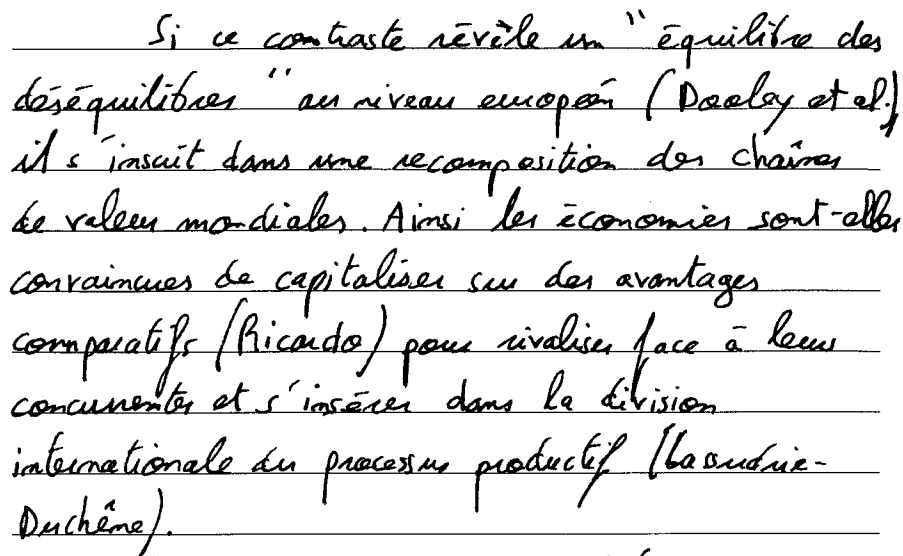 Si ce contraste révèle un "équilibre des
déséquilibres" au niveau européen (Dooley et al.)
il s'inscrit dans une recomposition des chaînes
de valeur mondiales. Ainsi les économies sont-elles
convaincues de capitaliser sur des avantages
comparatifs (Ricardo) pour rivaliser face à leurs
concurrentes et s'insérer dans la division
internationale du processus productif (Lassudrie-
Duchêne).